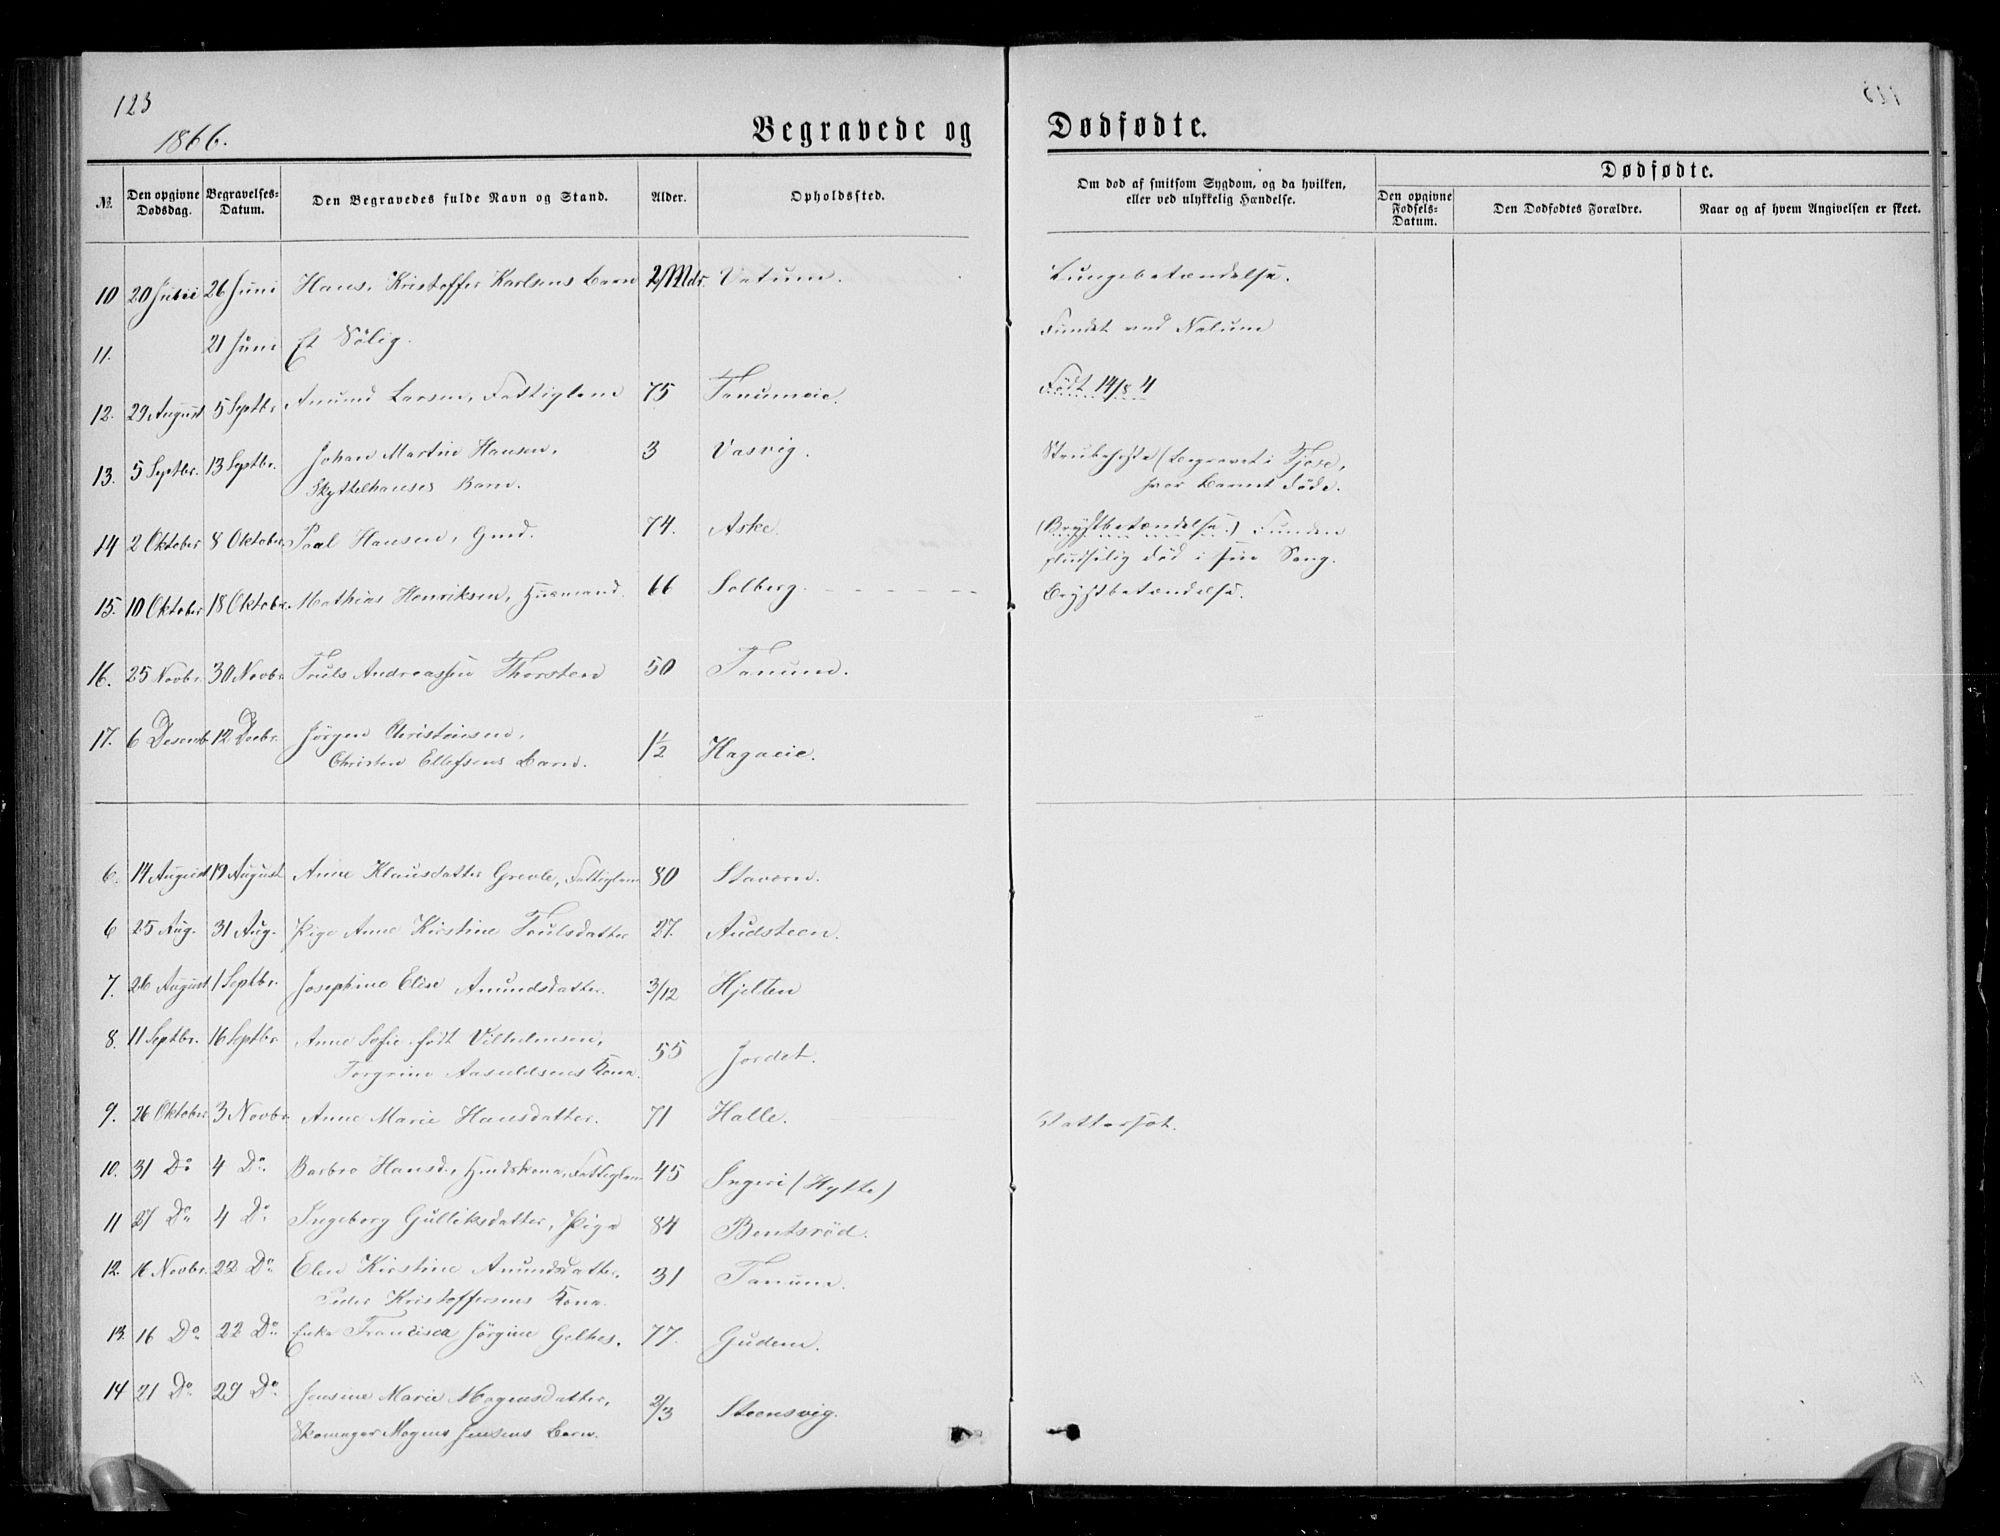 123
1866.
Begravede og Dødfødte.
№ Den opgivne Dødsdag. Begravelses-Datum. Den Begravedes fulde Navn og Stand. Alder. Opholdssted. Om død af smitsom Sygdom, og da hvilken, eller ved ulykkelig Hændelse. Dødfødte. Den opgivne Fødsels-Datum. Den Dødfødtes Forældre. Naar og af hvem Angivelsen er skeet.
10 20 Juni 26 Juni Hans, Kristoffer Karlsens Barn 2 Mdr. Vatum. Lungebetændelse.
11. 21 Juni Et Sølig. Fundet ved Nalum
12. 29 August 5 Septbr. Amund Larsen, Fattiglem 75 Tanumeie. Født 14/8 4
13. 5 Septbr. 13 Septbr. Johan Martin Hansen, 3 Vasvig. Strubehoste (Begravet i Tjose,
Skyttelhauses Barn. hvor Barnet døde.
14 2 Oktober 8 Oktober. Paal Hansen, Gmd. 74. Aske. (Brystbetændelse.) Funden
pludselig død i sin Seng.
15. 10 Oktober 18 Oktober. Mathias Henriksen, Husmand. 66 Solberg. Brystbetændelse.
16. 25 Novbr. 30 Novbr. Truls Andreassen Thorsten 50 Tanum.
17. 6 Desemb. 12 Decbr. Jørgen Christensen, 1½ Hagaeie.
Christen Ellefsens Barn.
6. 14 August 19 August Anne Klausdatter Grevle, Fattiglem 80 Stavern.
6 25 Aug. 31 Aug. Pige Anne Kirstine Poulsdatter 27. Audsteen.
7. 26 August 1 Septbr. Josephine Elise Amundsdatter. 3/12 Hjelten
8. 11 Septbr. 16 Septbr. Anne Sofie født Vilhelmsen, 55 Jordet.
Torgrim Aasuldsens Kona.
9. 26 Oktober 3 Novbr. Anne Marie Hansdatter. 71 Halle. Vattersot.
10. 31 Do 4 Do. Barbro Hansd., Hmdskona, Fattiglem 45 Ingeri (Hytte)
11 27 Do 4 Do Ingeborg Gulliksdatter, Pige 84 Bentsrød.
12. 16 Novbr. 22 Do. Elen Kirstine Amundsdatter, 31 Tanum.
Peder Kristoffersens Kona.
13. 16 Do 22 Do. Enke Francisca Jørgine Gelhes. 77. Gudem.
14 21 Do 29 Do Jensine Marie Mogensdatter, 2/3 Steensvig.
Skomager Mogens Jensens Barn.